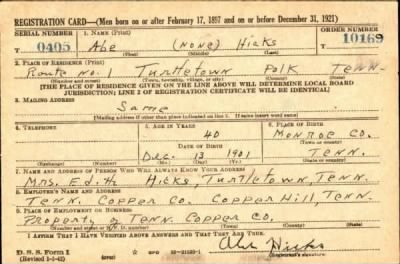 REGISTRATION CARD—(Men born on or after February 17, 1897 and on or before December 31, 1921)
SERIAL NUMBER 1. NAME (Print) ORDER NUMBER
T 0405 Abe (none) Hicks 10169
(First) (Middle) (Last)
2. PLACE OF RESIDENCE (Print)
Route No. 1 Turtletown Polk Tenn.
(Number and street) (Town, township, village, or city) (County) (State)
[THE PLACE OF RESIDENCE GIVEN ON THE LINE ABOVE WILL DETERMINE LOCAL BOARD
JURISDICTION; LINE 2 OF REGISTRATION CERTIFICATE WILL BE IDENTICAL]
3. MAILING ADDRESS
Same
[Mailing address if other than place indicated on line 2. If same insert word same]
4. TELEPHONE 5. AGE IN YEARS 6. PLACE OF BIRTH
40 Monroe Co.
DATE OF BIRTH (Town or county)
Dec. 13 1901 Tenn.
(Exchange) (Number) (Mo.) (Day) (Yr.) (State or country)
7. NAME AND ADDRESS OF PERSON WHO WILL ALWAYS KNOW YOUR ADDRESS
Mrs. Edith Hicks, Turtletown, Tenn.
8. EMPLOYER'S NAME AND ADDRESS
Tenn. Copper Co. Copper Hill, Tenn.
9. PLACE OF EMPLOYMENT OR BUSINESS
Property of Tenn. Copper Co.
(Number and street or R. F. D. number) (Town) (County) (State)
I AFFIRM THAT I HAVE VERIFIED ABOVE ANSWERS AND THAT THEY ARE TRUE.
D. S. S. Form 1
(Revised 1-1-42) (over) Abe Hicks
(Registrant's signature)